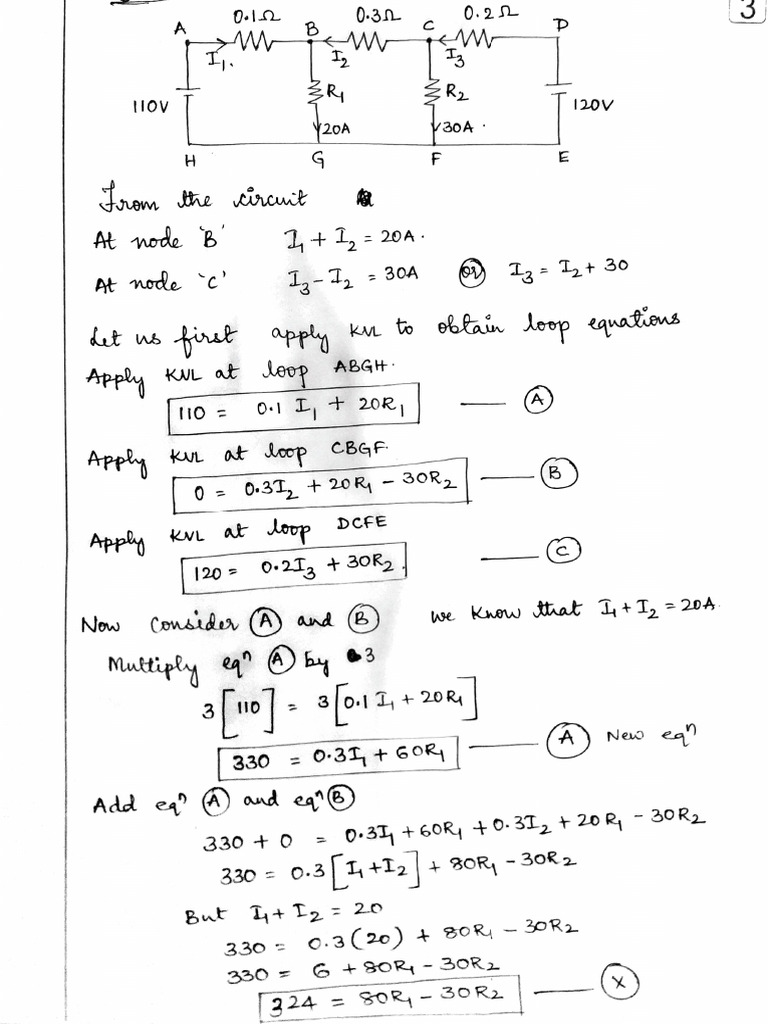 3
0.1Ω 0.3Ω 0.2Ω
A B C D
I₁. I₂ I₃
110V R₁ R₂ 120V
20A 30A.
H G F E
From the circuit
At node 'B' I₁ + I₂ = 20A.
At node 'C' I₃ - I₂ = 30A (or) I₃ = I₂ + 30
Let us first apply KVL to obtain loop equations
Apply KVL at loop ABGH.
110 = 0.1 I₁ + 20R₁ — (A)
Apply KVL at loop CBGF.
0 = 0.3I₂ + 20R₁ - 30R₂ — (B)
Apply KVL at loop DCFE
120 = 0.2I₃ + 30R₂. — (C)
Now consider (A) and (B) we know that I₁ + I₂ = 20A.
Multiply eqⁿ (A) by 3
3[110] = 3[0.1 I₁ + 20R₁]
330 = 0.3I₁ + 60R₁ — (A) New eqⁿ
Add eqⁿ (A) and eqⁿ (B)
330 + 0 = 0.3I₁ + 60R₁ + 0.3I₂ + 20R₁ - 30R₂
330 = 0.3[I₁ + I₂] + 80R₁ - 30R₂
But I₁ + I₂ = 20
330 = 0.3(20) + 80R₁ - 30R₂
330 = 6 + 80R₁ - 30R₂
324 = 80R₁ - 30R₂ — (X)